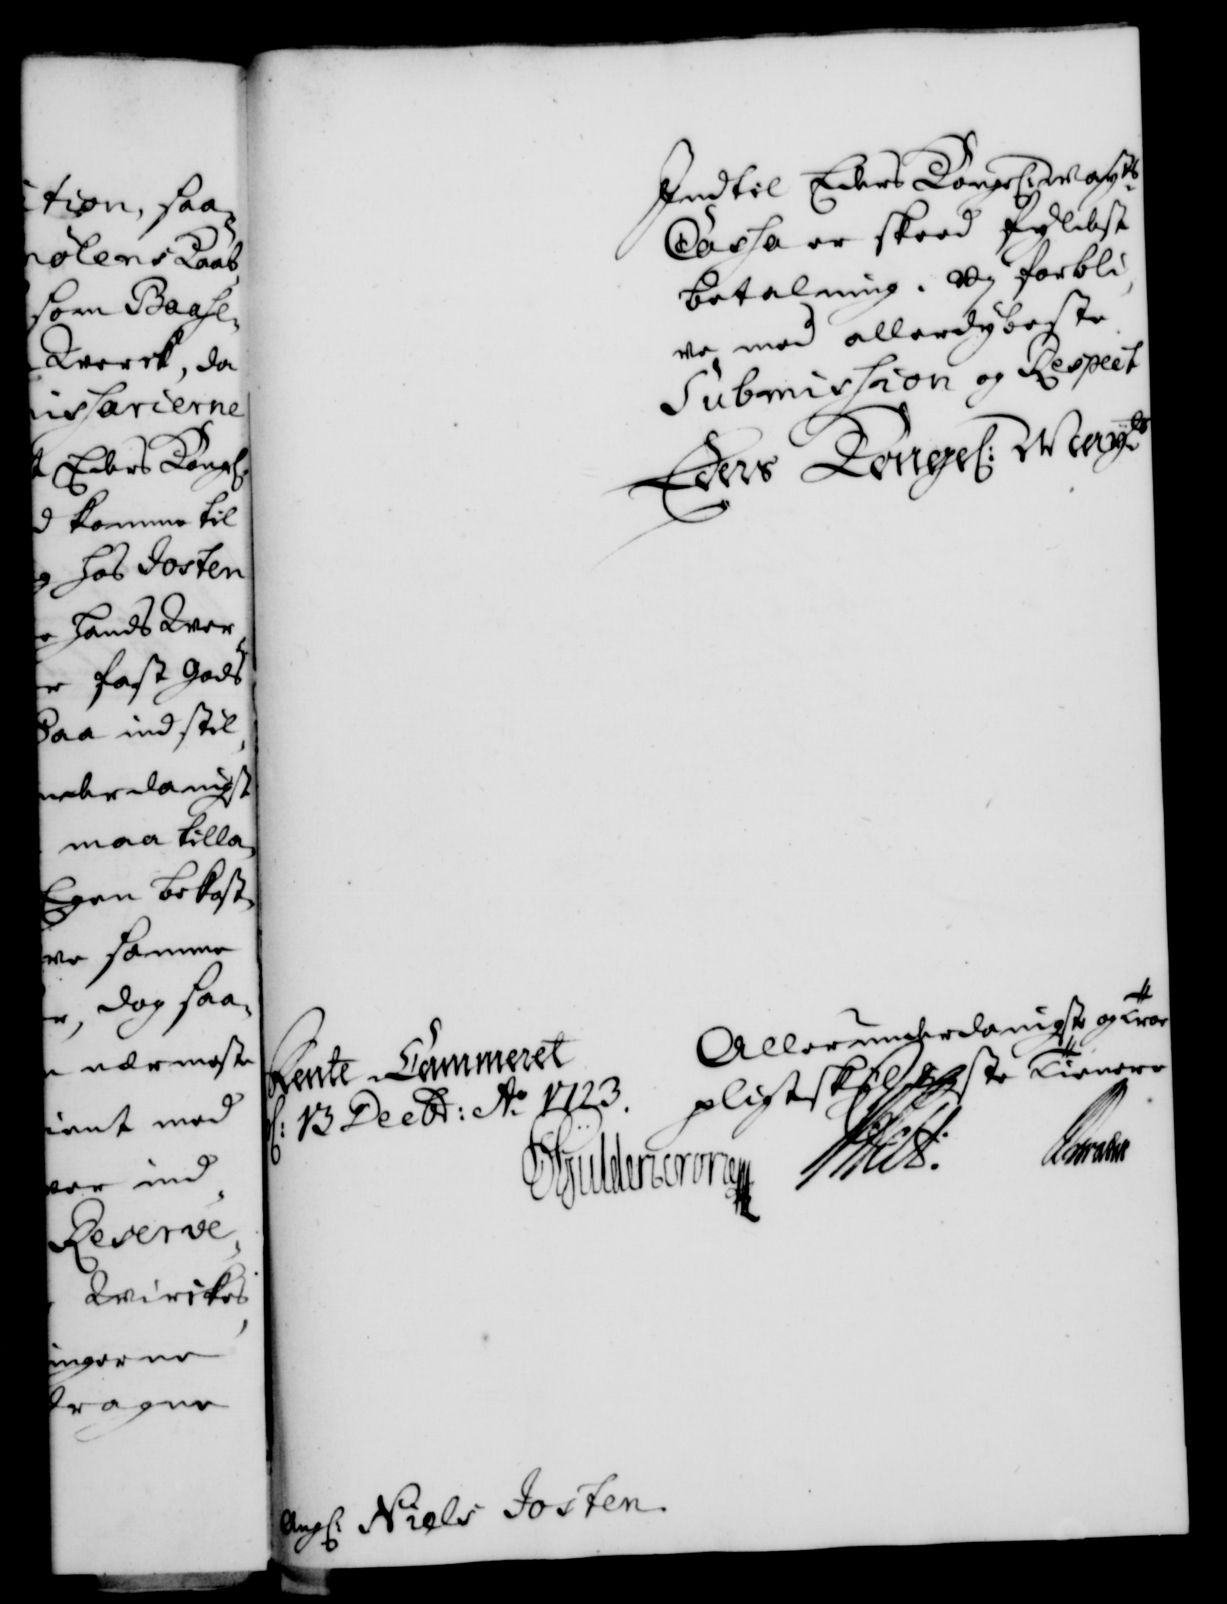 tion, saa¬
nølens Raab,
som Baahe¬
Kverck, da
issarierne
Eders Kongl:
d komme til
hos Josten
hands Kver,
r fast Gods
Saa indstil,
underdanigst
maa tilla,
Egen bekost,
ve samme
r, dog saa¬
nærmeste
ient med
ver ind,
Reserve,
Kvirkes
ingerne
dragne
Indtil Eders Kongel: Mayts
Cassa er skeed skyldigst
betalning. Vi forbli,
ve med allerdybeste
Submission og Respect
Eders Kongel: Mayts
Rente-Cammeret
d: 13 Decbr: Ao 1723.
Allerunderdanigste og troe
pligtskyldigste Tienere
Güldencrone
Niels Josten.